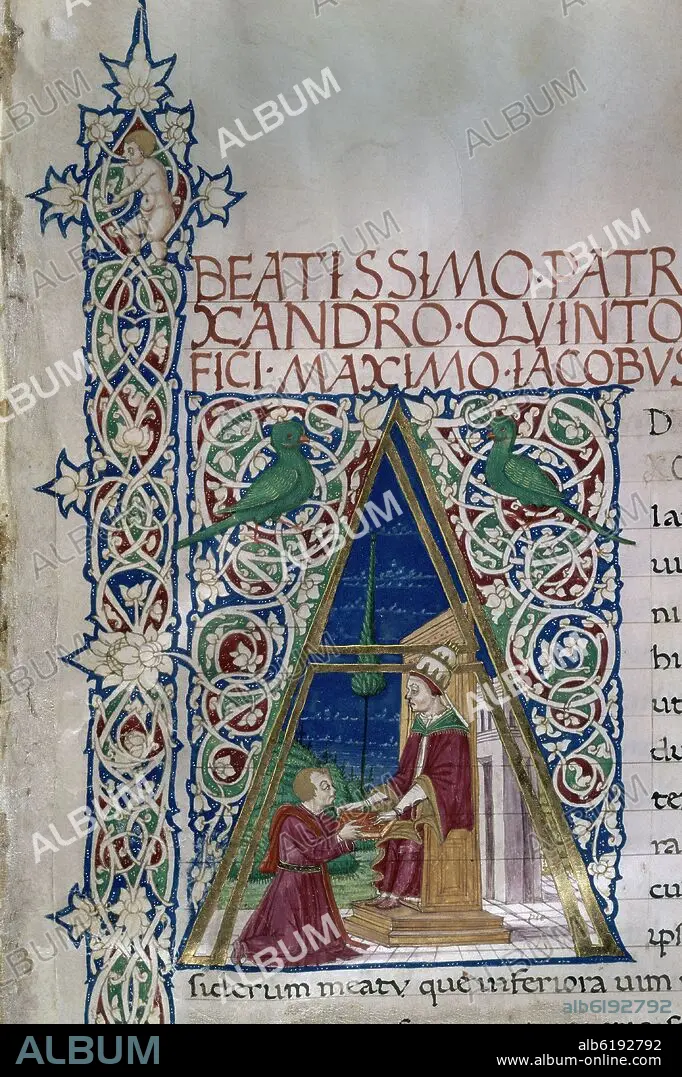 BEATISSIMO·PATR
XANDRO·QVINTO
FICI·MAXIMO·IACOBVS
D
XO
la
ni
bi
ut
du
te
ra
cu
ips
siderum meatu que inferiora uim
ALBUM
alb6192792
alb6192792
www.album-online.com